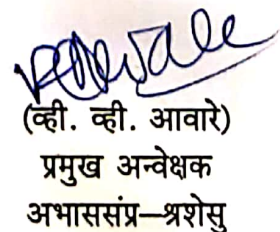 (व्ही. व्ही. आवारे)
प्रमुख अन्वेक्षक
अभाससंप्र–श्रशेसु